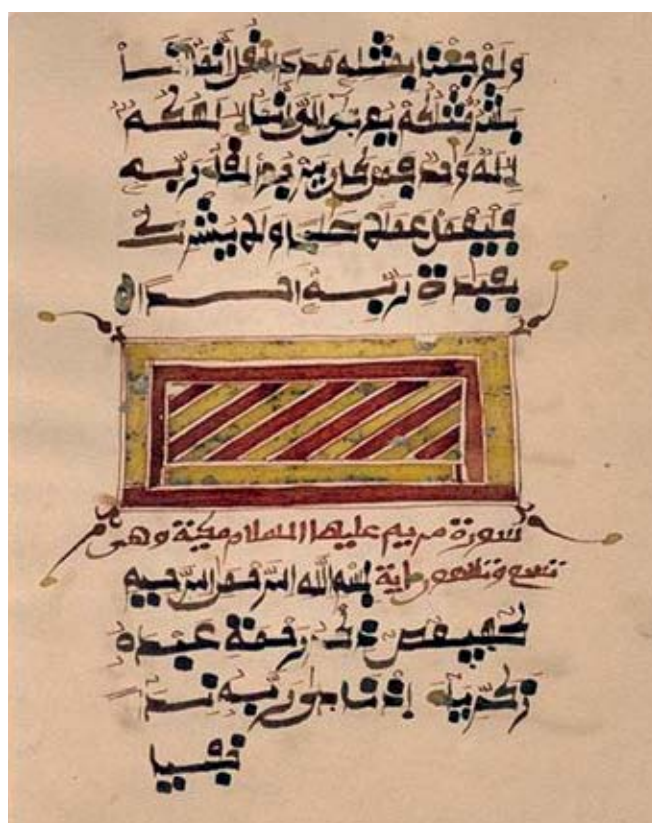 ولو جئنا بمثله مددا قل انما انا
بشر مثلكم يوحى الي انما الهكم
اله وحد فمن كان يرجوا لقا ربه
فليعمل عملا صلحا ولا يشرك
بعبدة ربه احدا
سورة مريم عليها السلام مكية وهي
تسع وتسعون اية بسم الله الرحمن الرحيم
كهيعص ذكر رحمة عبده
زكريا اذ نادى ربه ندا
خفيا